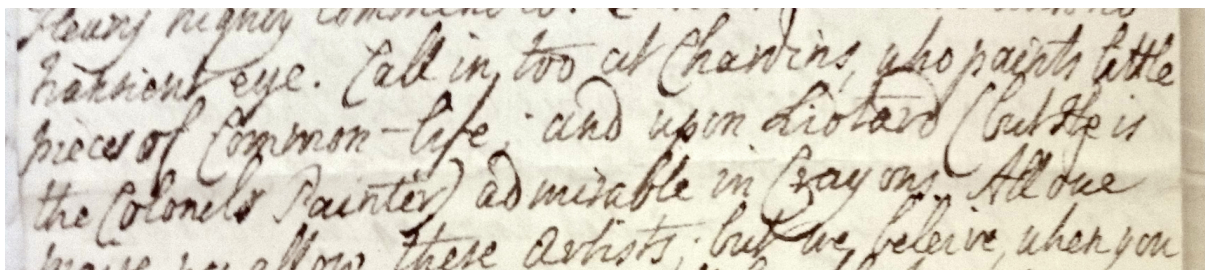 highly
transient eye. Call in, too at Chardins, who paints little
pieces of Common-life; and upon Liotard (but He is
the Colonels Painter) admirable in Crayons. All due
praise we allow these Artists; but we beleive, when you